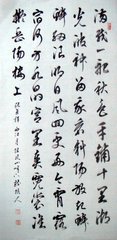 滿載一船秋色平鋪十里湖
光波神留我看斜陽放起鱗
鱗細浪明日風回更好今宵露
宿何妨水晶宮裏奏霓裳準
擬岳陽樓上